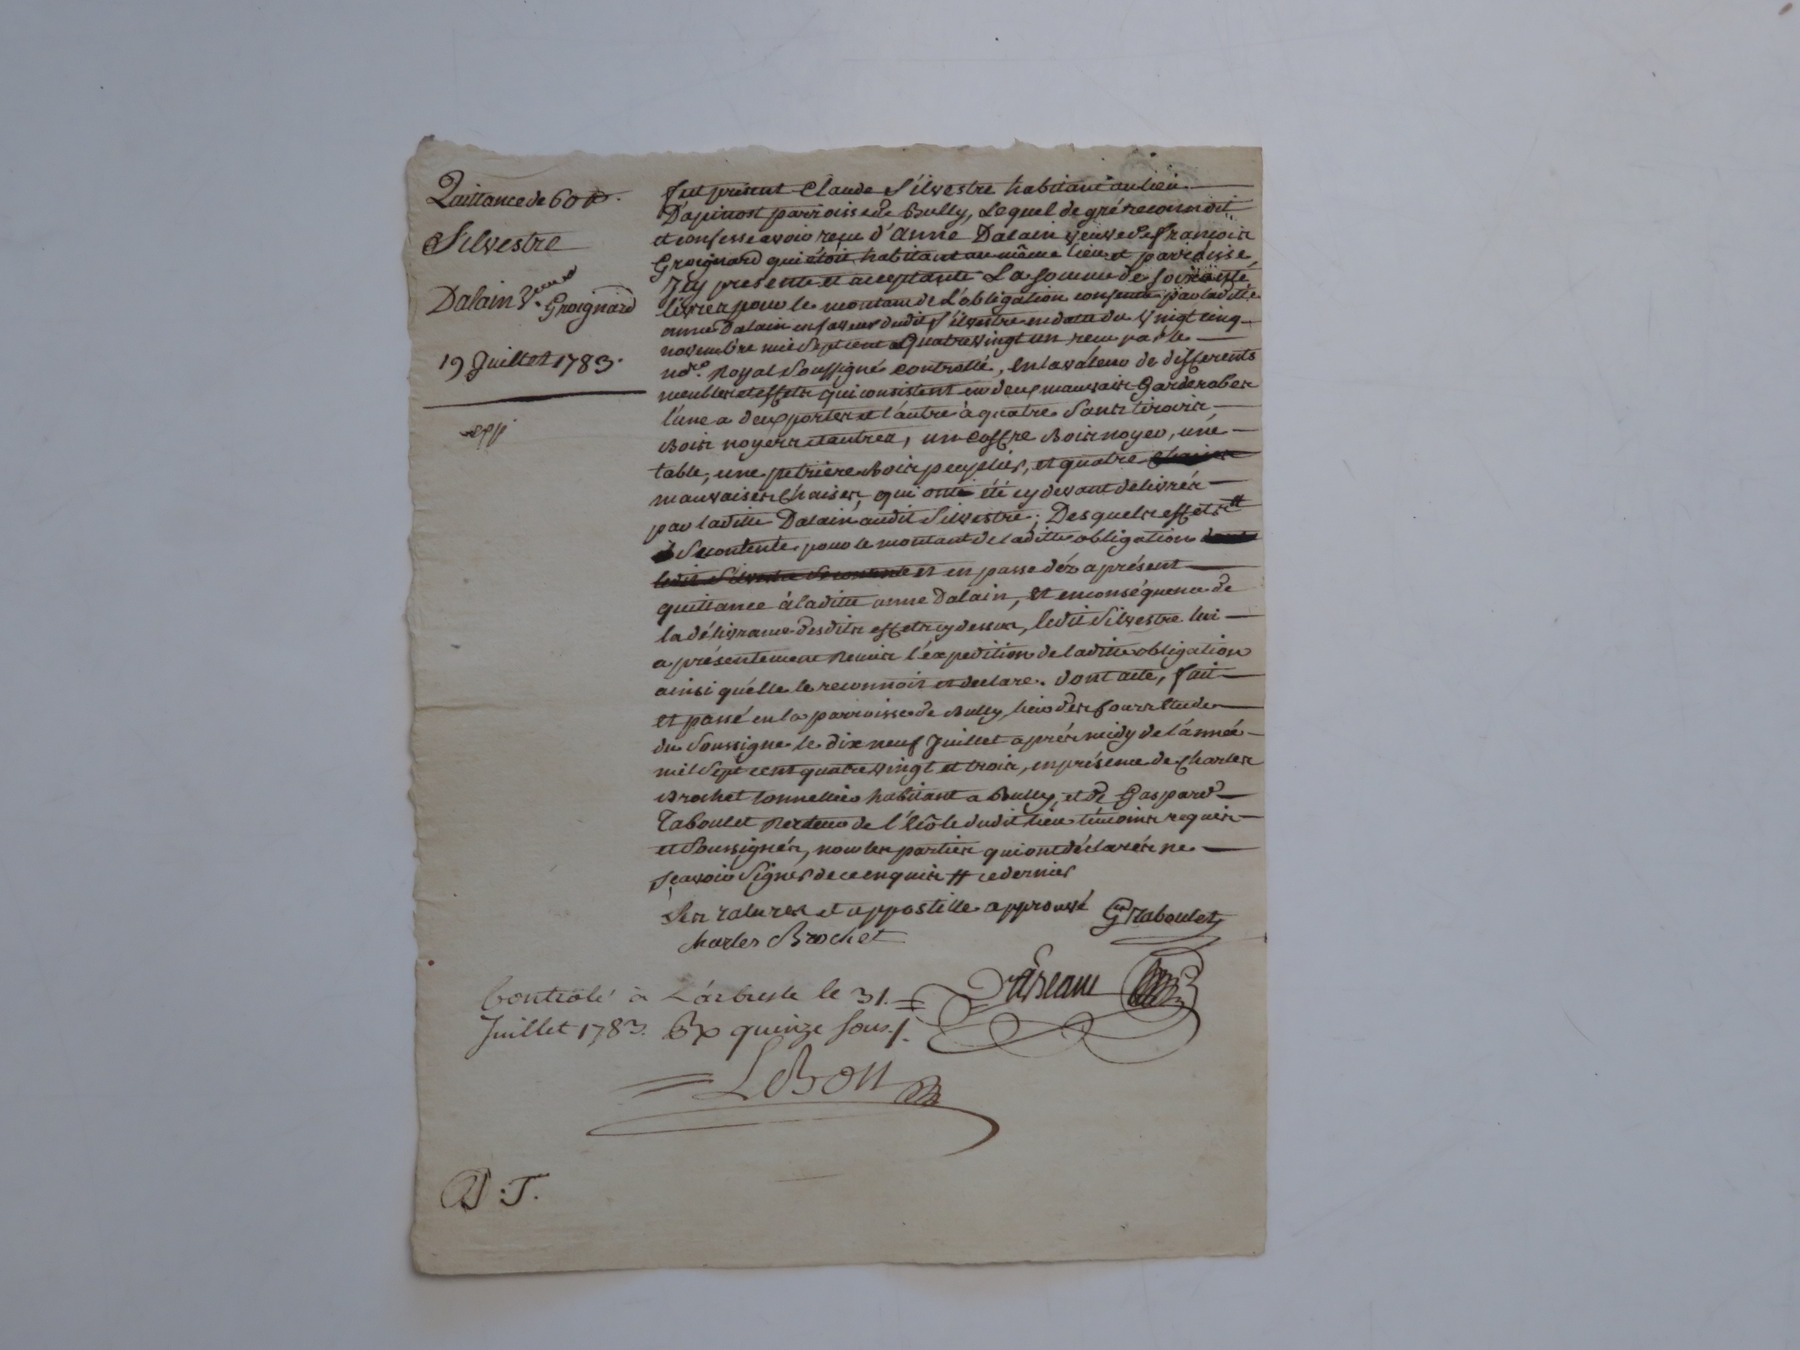 Quittance de 60 ₶.
Silvestre
Dalain Veuve
Groignard
19 Juillet 1783.
exp
fut présent Claude Silvestre habitant au lieu
D'apinost parroisse de Bully, Lequel de gré reconnoit
et confesse avoir reçu d'anne Dalain veuve de françois
Groignard qui étoit habitant au même lieu et parroisse,
Icy presente et acceptante La somme de soixante
livres pour le montant de L'obligation consentie par laditte
anne Dalain en faveur dudit Silvestre en datte du vingt cinq
novembre mil sept cent quatre vingt un recu par le
nore. Royal soussigné controllé, En la valeur de differents
meubles et effets qui consistent en deux mauvais Garderobes
l'une a deux portes et l'autre à quatre sans tiroirs
Bois noyers et autres, un Coffre Bois noyer, une
table, une petrière Bois peuplier, et quatre chaises
mauvaises Chaises, qui ont été cy devant delivrés
par laditte Dalain audit Silvestre; Desquels effets #
Se contente pour le montant de laditte obligation dont
ledit Silvestre Se contente et en passe déz aprésent
quittance à laditte anne Dalain, Et en conséquence de
la délivrance desdits effets cy dessus, ledit Silvestre lui
a présentement Remis l'expedition de laditte obligation
ainsi qu'elle le reconnoit et declare. Dont acte, fait
et passé en la parroisse de Bully lieu des fours Etude
du Soussigné le dix neuf Juillet après midy de l'année
mil Sept cent quatre vingt et trois, en présence de Charles
Brochet tonnellier habitant a Bully, et de Gaspard
Taboulet Recteur de l'École dudit lieu témoins requis
et Soussignés, non les parties qui ont déclarés ne
sçavoir Signer de ce enquis # ce dernier
Les ratures et appostille approuvé G Taboulet
Charles Brochet
Controlé à L'arbresle le 31.
Juillet 1783. Rx quinze sous.
LeBon